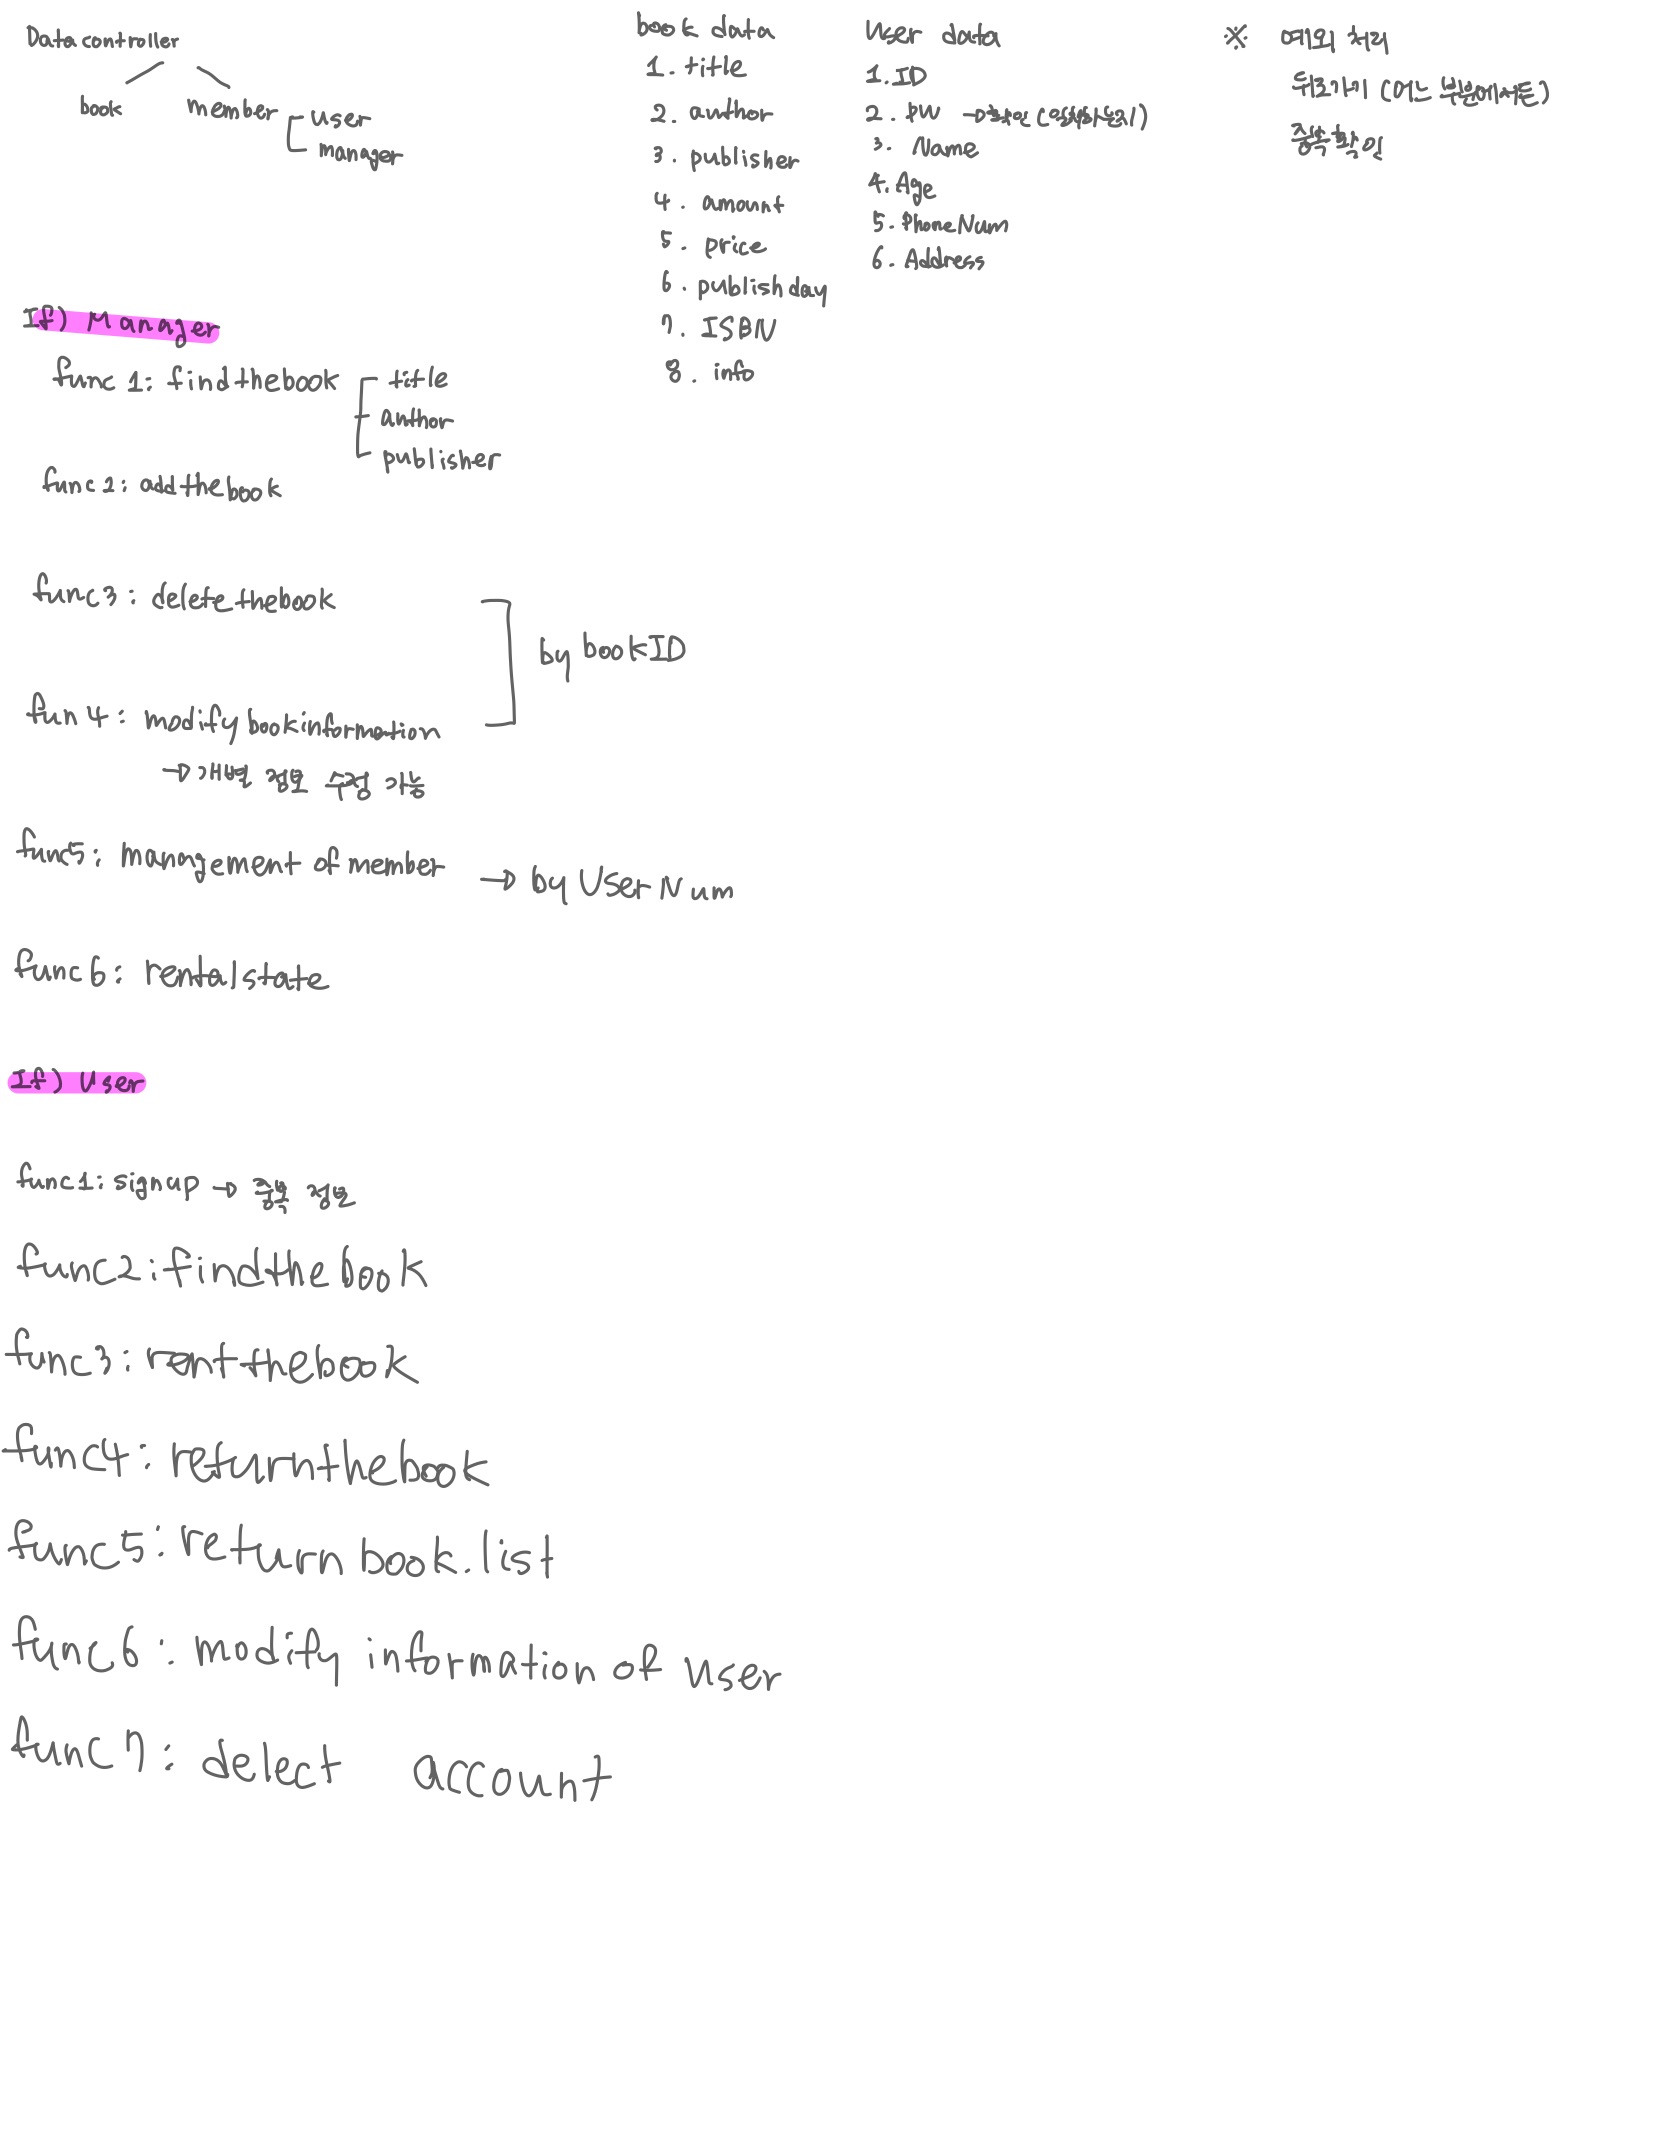 Data controller
book
member
user
manager
book data
1. title
2. author
3. publisher
4. amount
5. price
6. publish day
7. ISBN
8. info
User data
1. ID
2. PW → 확인 (일치하는지)
3. Name
4. Age
5. PhoneNum
6. Address
※ 예외 처리
뒤로가기 (어느 부분에서든)
중복확인
If) Manager
func 1: findthebook
title
author
publisher
func 2: addthebook
func3: deletethebook
by bookID
fun 4: modifybookinformation
→ 개별 정보 수정 가능
func5: management of member → by UserNum
func 6: rentalstate
If) User
func1: signup → 중복 정보
func2: findthebook
func3: rentthebook
func4: returnthebook
func5: returnbook.list
func6: modify information of user
func7: delect account